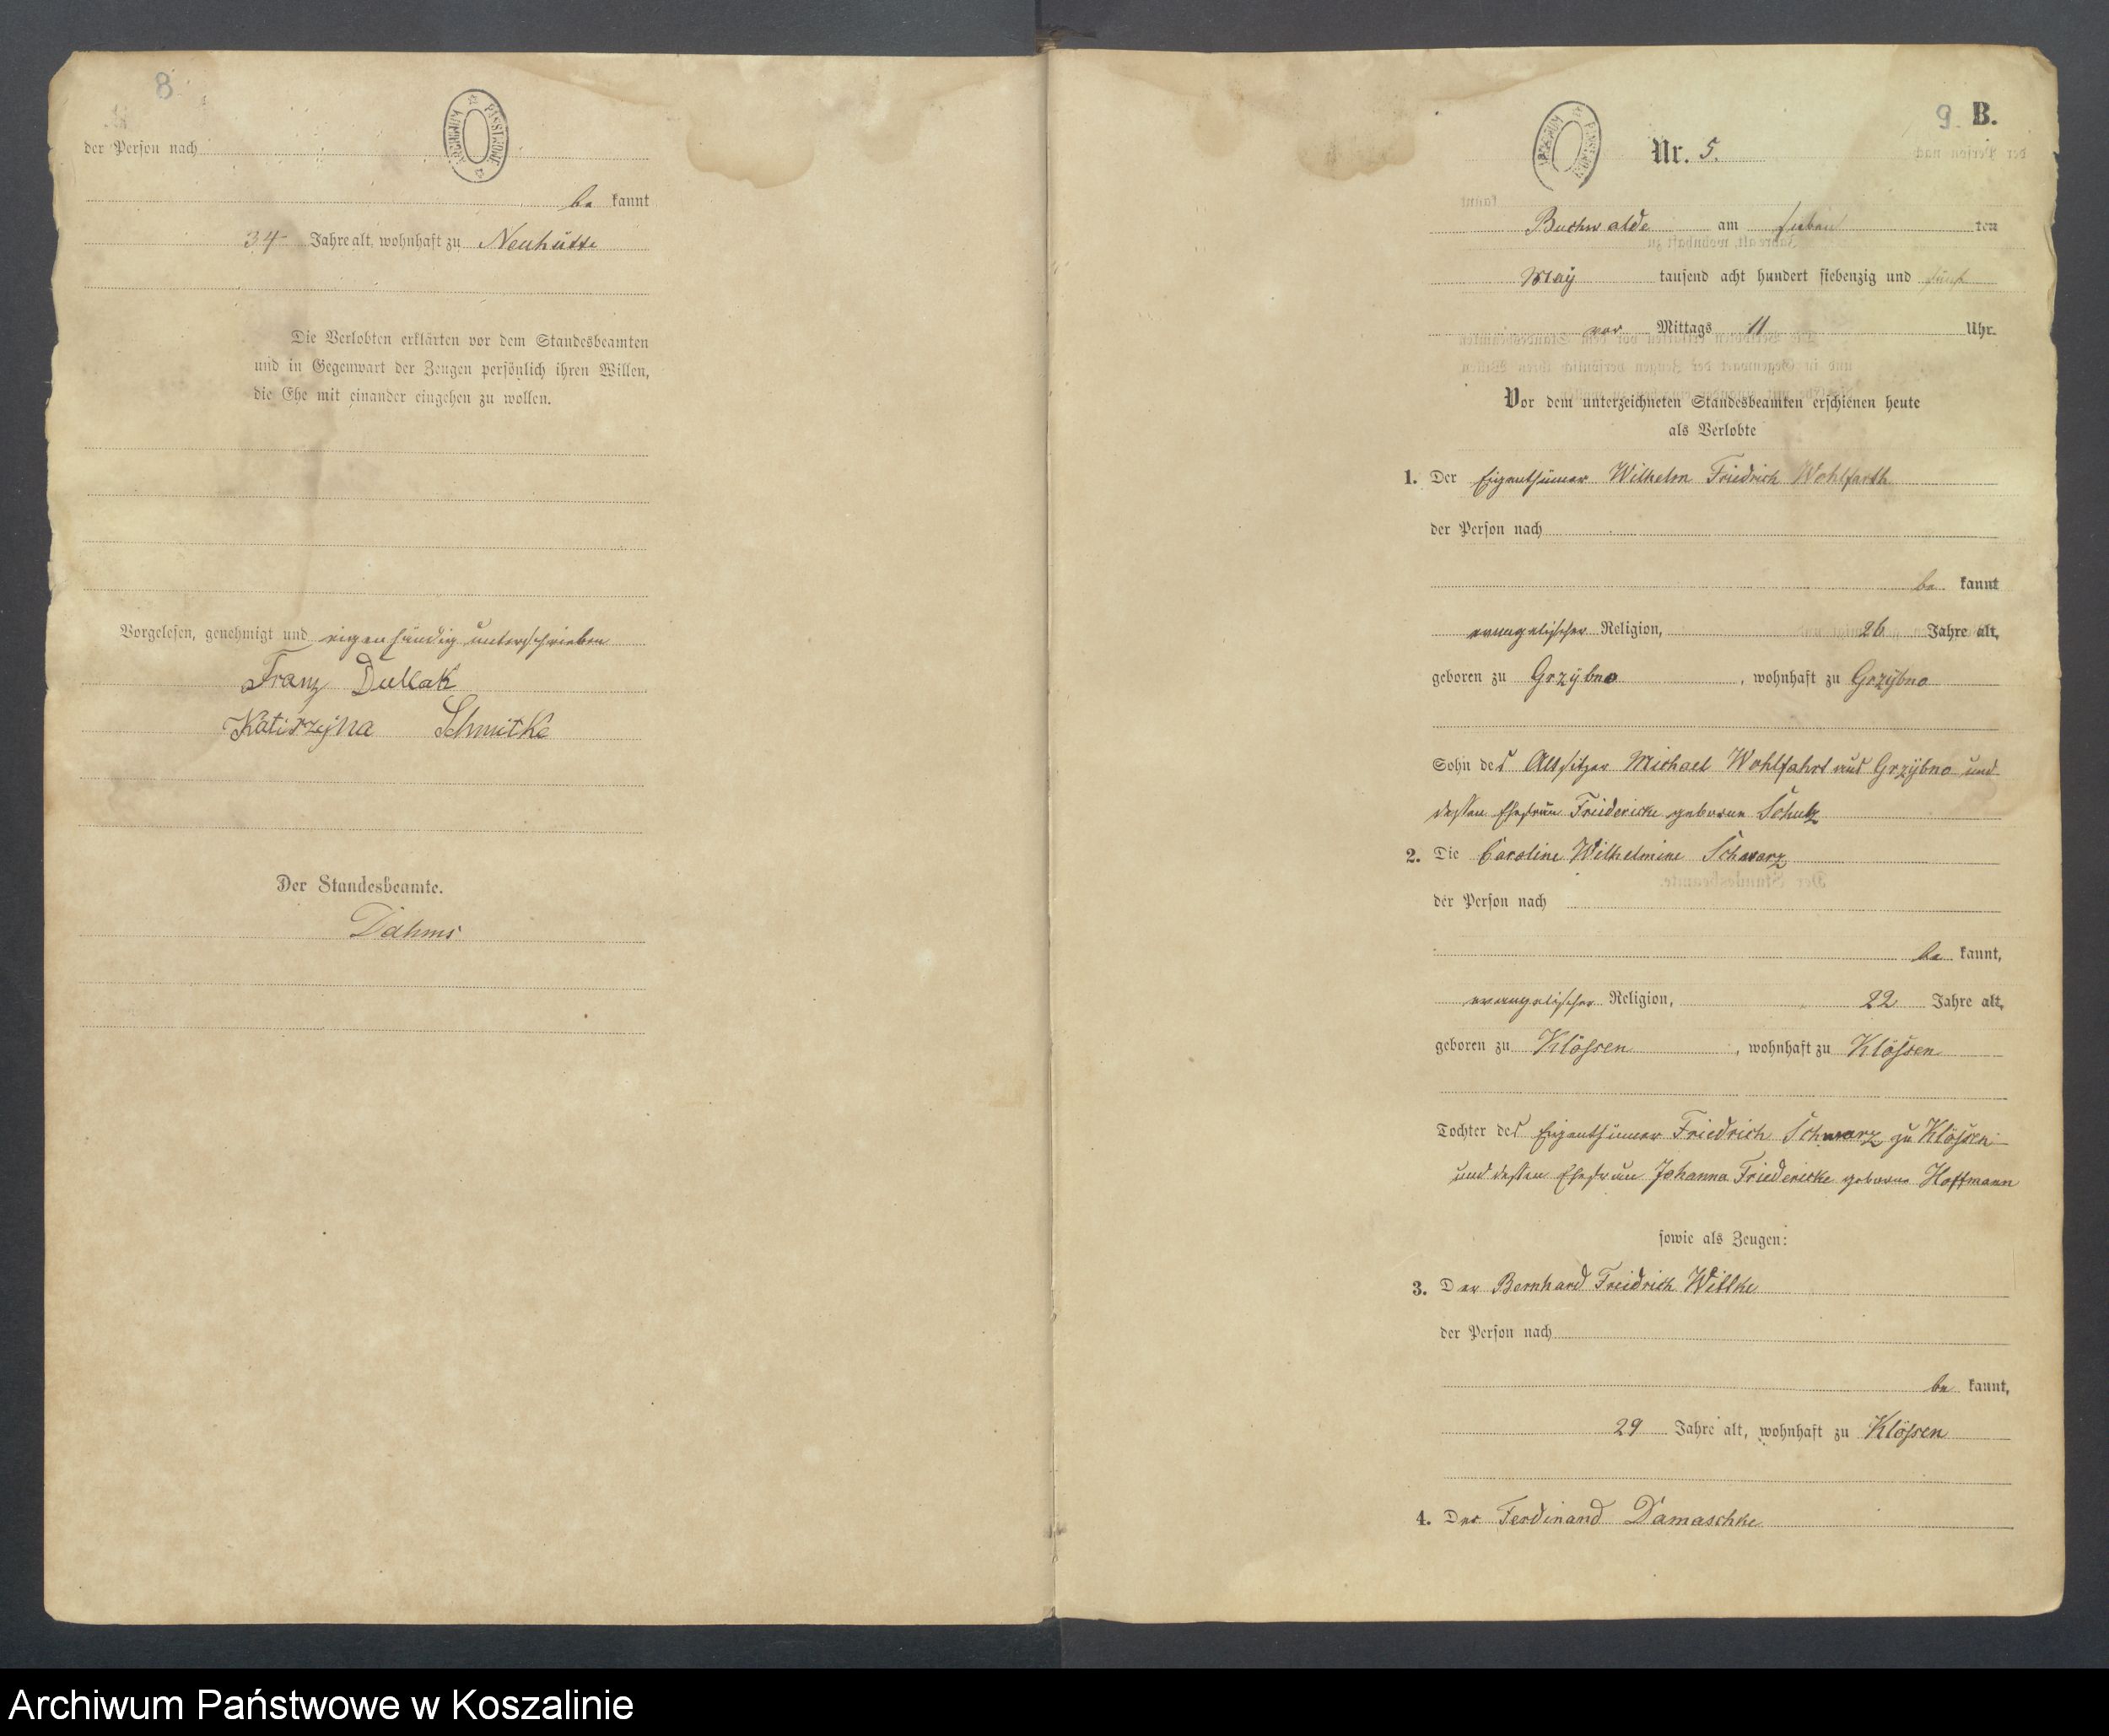 8
der Person nach
be kannt
34 Jahre alt, wohnhaft zu Neuhütte
Die Verlobten erklärten vor dem Standesbeamten
und in Gegenwart der Zeugen persönlich ihren Willen,
die Ehe mit einander eingehen zu wollen.
Vorgelesen, genehmigt und eigenhändig unterschrieben
Franz Dullak
Katirzyna Schmitke
Der Standesbeamte.
Dahms
9 B.
Nr. 5.
Buchwalde am sieben ten
May tausend acht hundert siebenzig und fünf
vor Mittags 11 Uhr.
Vor dem unterzeichneten Standesbeamten erschienen heute
als Verlobte
1. Der Eigenthümer Wilhelm Friedrich Wohlfarth
der Person nach
be kannt
evangelischer Religion, 26 Jahre alt,
geboren zu Grzÿbno, wohnhaft zu Grzÿbno
Sohn des Altsitzer Michael Wohlfahrt aus Grzÿbno und
dessen Ehefrau Friedericke geborene Schulz
2. Die Caroline Wilhelmine Schwarz
der Person nach
be kannt,
evangelischer Religion, 22 Jahre alt,
geboren zu Klössen, wohnhaft zu Klössen
Tochter des Eigenthümer Friedrich Schwarz zu Klössen
und dessen Ehefrau Johanna Friedericke geborne Hoffmann
sowie als Zeugen:
3. Der Bernhard Freidrich Willke
der Person nach
be kannt,
29 Jahre alt, wohnhaft zu Klössen
4. Der Ferdinand Damaschke
Archiwum Państwowe w Koszalinie